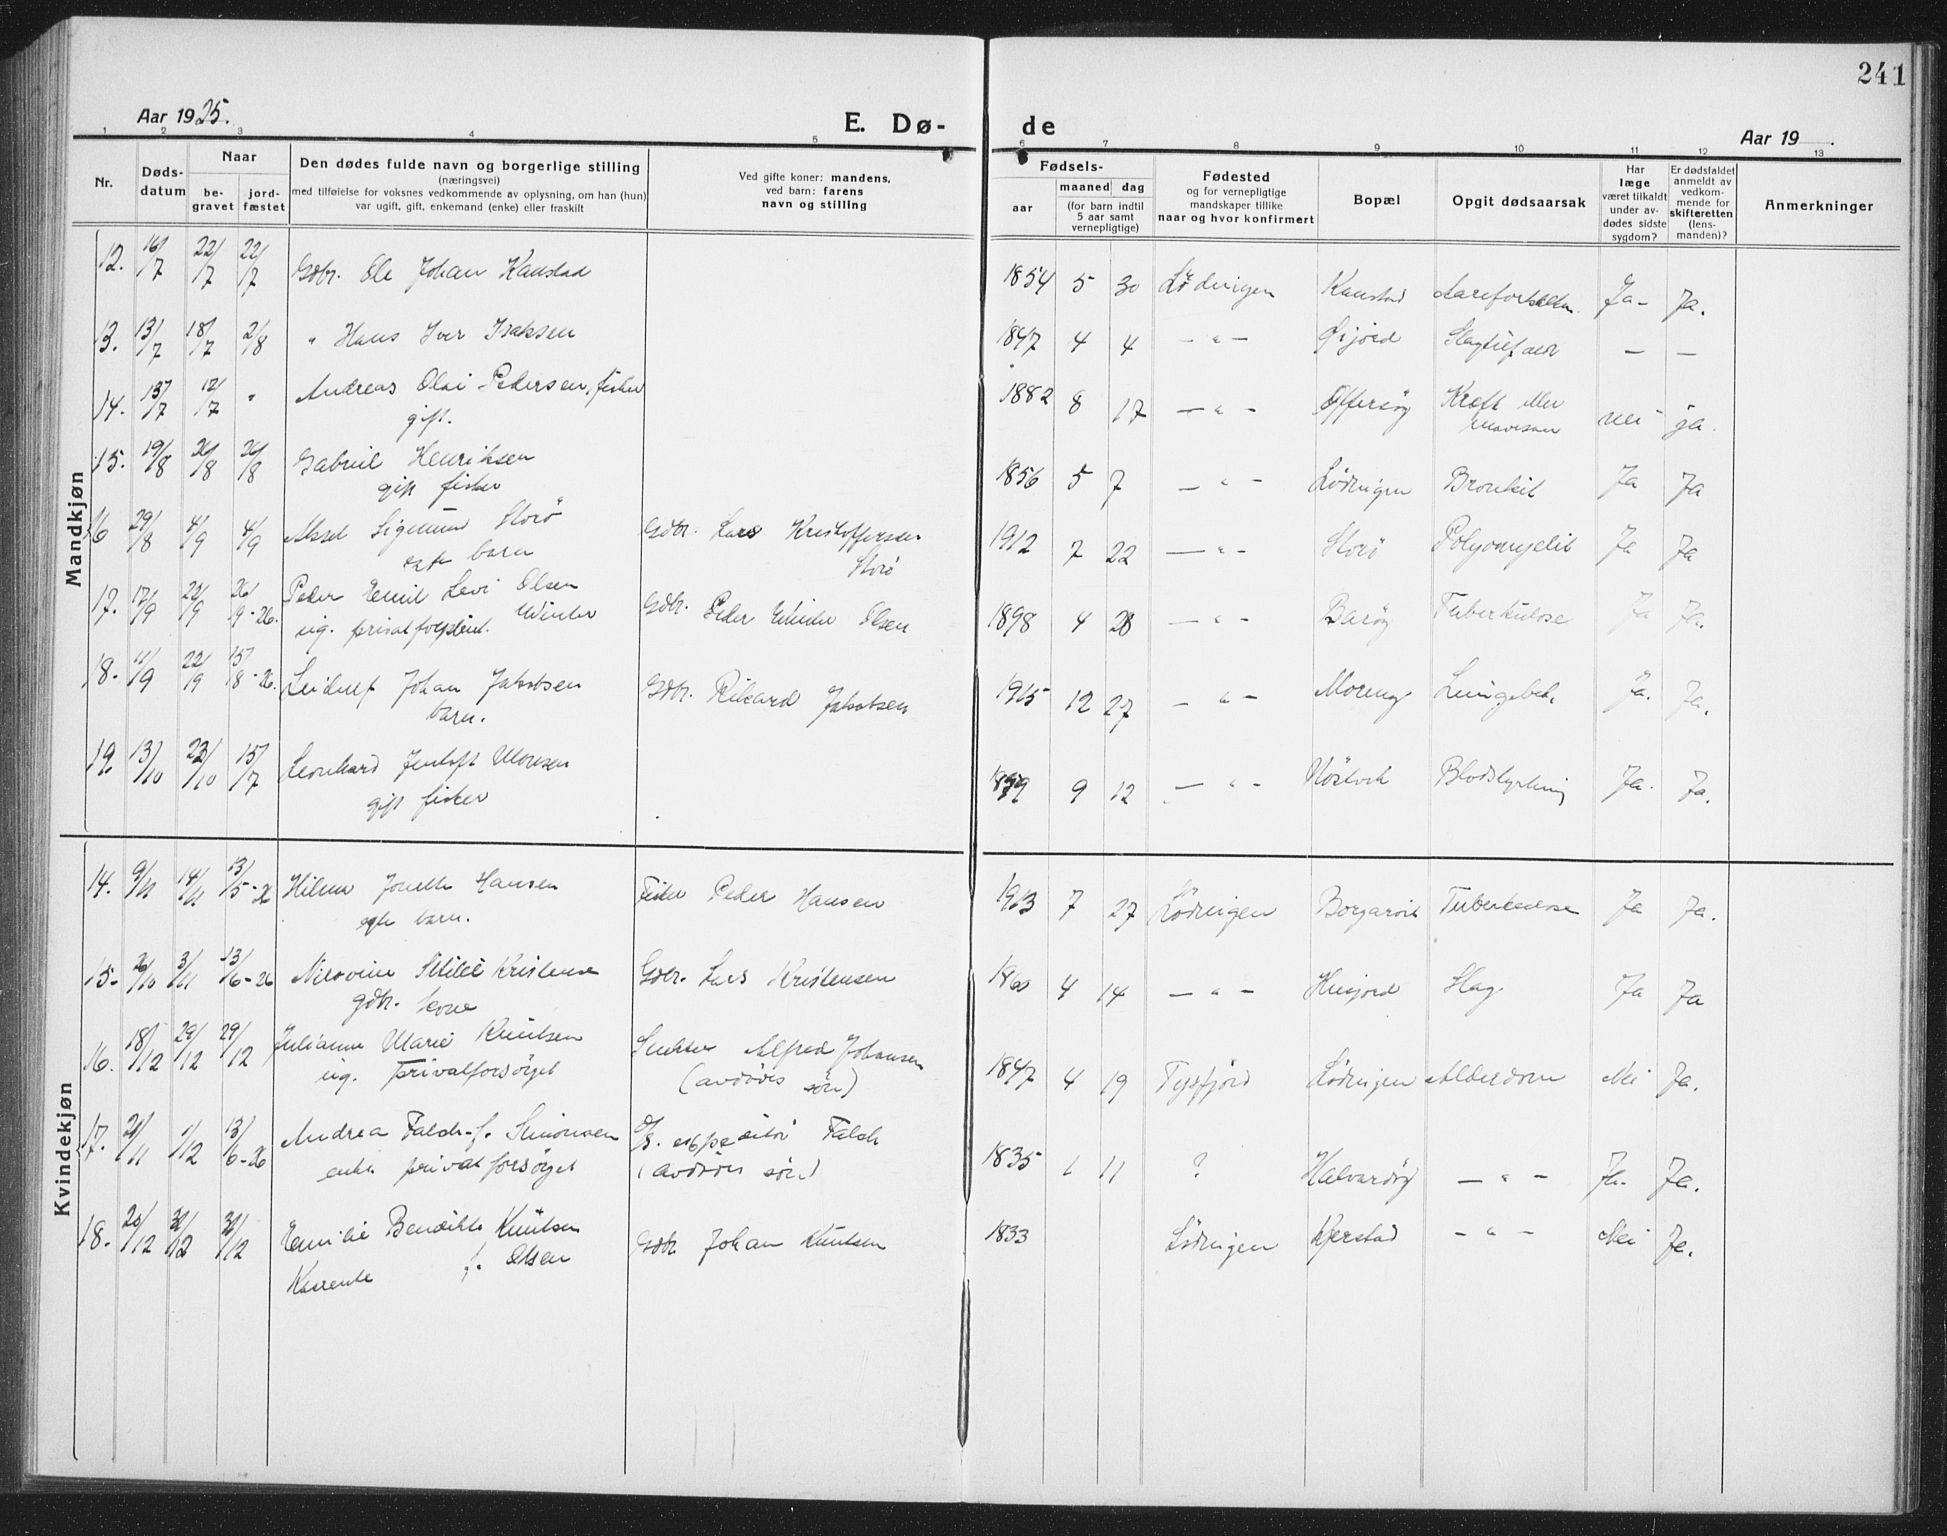 241
Aar 1925.
E. Dø-
de
Aar 19
1 2 3 4 5 6 7 8 9 10 11 12 13
Nr.
Døds-
datum
Naar
be-
gravet
jord-
fæstet
Den dødes fulde navn og borgerlige stilling
(næringsvei)
med tilføielse for voksnes vedkommende av oplysning, om han (hun)
var ugift, gift, enkemand (enke) eller fraskilt
Ved gifte koner: mandens,
ved barn: farens
navn og stilling
Fødsels-
aar
maaned dag
(for barn indtil
5 aar samt
vernepligtige)
Fødested
og for vernepligtige
mandskaper tillike
naar og hvor konfirmert
Bopæl
Opgit dødsaarsak
Har
læge
været tilkaldt
under av-
dødes sidste
sygdom?
Er dødsfaldet
anmeldt av
vedkom-
mende for
skifteretten
(lens-
manden)?
Anmerkninger
Mandkjøn
12. 16/7 22/7 22/7 Gdbr. Ole Johan Kanstad 1854 5 30 Lødingen Kanstad Ja- Ja.
13. 13/7 18/7 2/8 " Hans Iver Isaksen 1847 4 4 - " - Slagtilfælde — —
14. 13/7 17/7 " Andreas Olai Pedersen, fisker 1882 8 17 — " - Offersøy Kræft eller
gift. nei - ja.
15. 19/8 26/8 26/8 Gabriel Henriksen 1856 5 7 — " - Lødingen Bronkit Ja Ja
gift fisker
16 29/8 4/9 4/9 Aksel Sigmund Storø Gdbr. Lars Kristoffersen 1912 7 22 — " - Storø Polyomyelit Ja Ja
ekte barn Storø
17. 17/9 23/9 26/9-26. Peder Emil Levi Olsen Gdbr. Peder Winder Olsen 1898 4 28 — " - Barøy Tuberkulose Ja Ja.
ug. privat forpleiet. Winder
18. 11/9 22/9 15/8-26. Leidulf Johan Jakobsen Gdbr. Rikard Jakobsen 1915 12 27 — " — Lungebet. Ja. Ja.
barn.
19. 13/10 23/10 15/7 Leonhard Jentoft Monsen 1899 9 12 — " - Blodstyrtning Ja. Ja.
gift fisker
Kvindekjøn
14. 9/11 14/11 13/5-26 Hilma Hansen Fisker Peder Hansen 1913 7 27 Lødingen Tuberkulose Ja Ja.
egte barn.
15- 26/10 3/11 13/6-26 Kristensen Gdbr. Lars Kristensen 1860 4 14 — " — Husjord Slag. Ja Ja
gdbr. kone
16. 18/12 29/12 29/12 Julianna Marie Knutsen Alfred Johansen 1847 4 19 Tysfjord Lødingen Alderdom Nei Ja.
ug. Privatforsørget (avdødes søn)
17. 21/11 1/12 13/6-26 Andrea Falch f. Simonsen D/S. expeditør Falch 1835 1 11 ? Halvardøy — " — Ja. Ja.
enke privatforsørget (avdødes søn)
18. 20/12 31/12 31/12 Emilie Bendikte Knutsen Gdbr. Johan Knutsen 1833 Lødingen Kjerstad - " - Nei Ja.
Kårenke f. Olsen